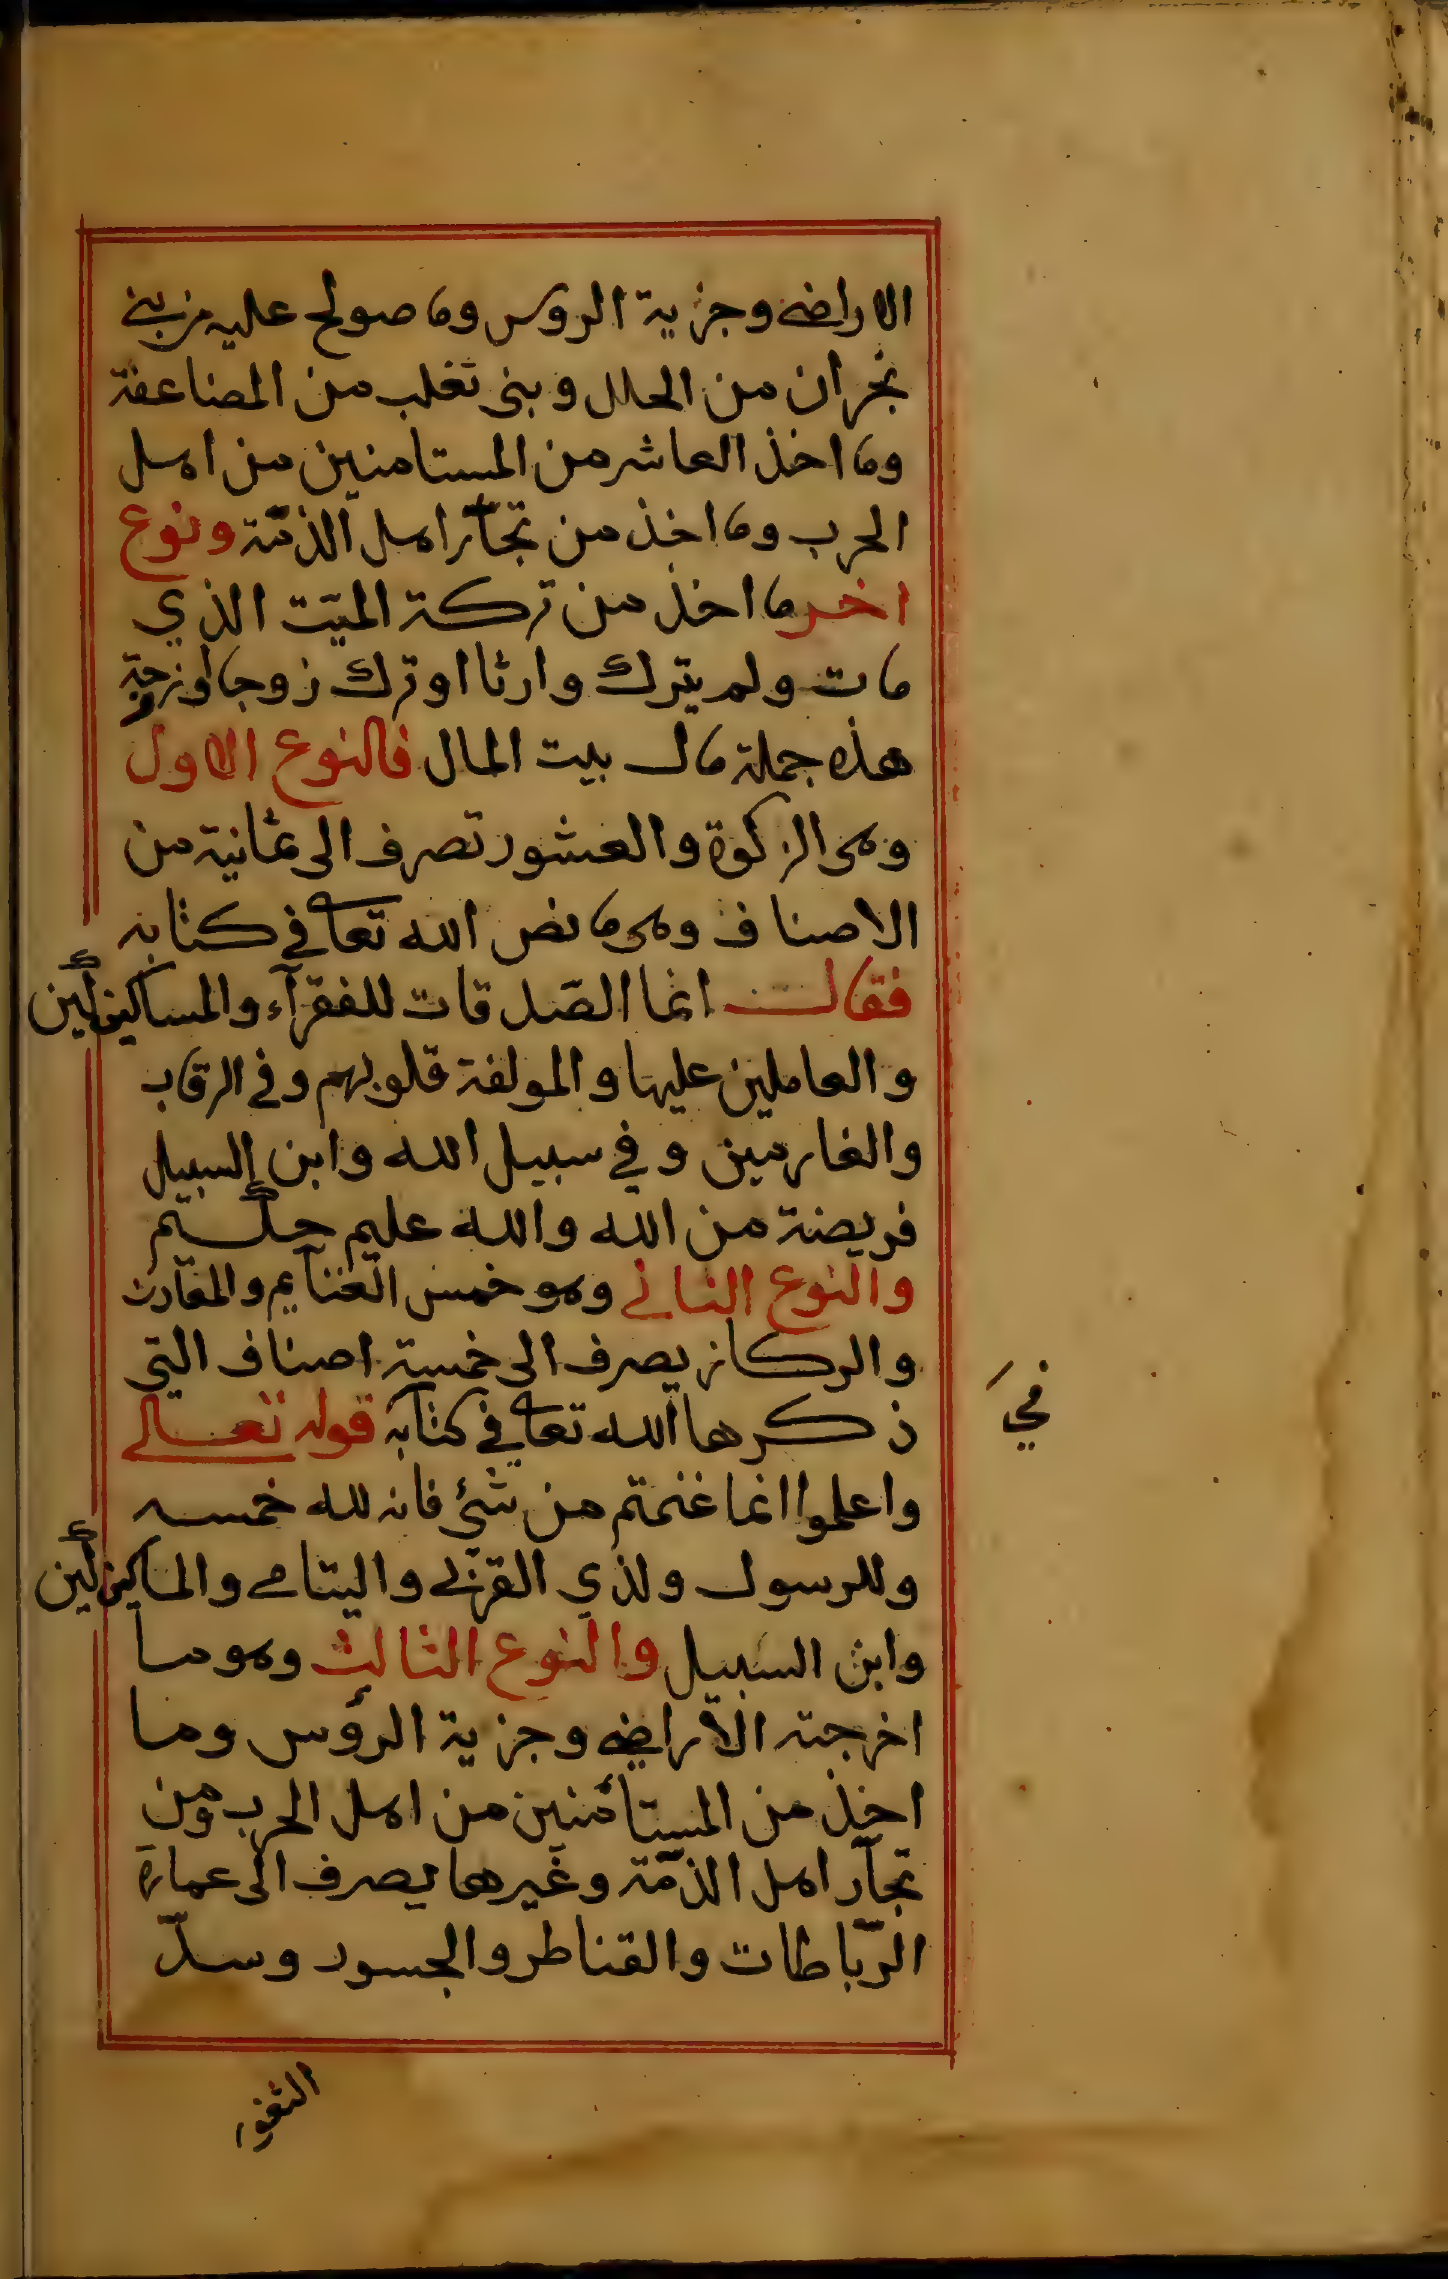 الاراضى وجزية الروس وما صولح عليه من بني
نجران من الحلل وبنى تغلب من المضاعفة
وما اخذ العاشر من المستامنين من اهل
الحرب وما اخذ من تجّار اهل الذمّة ونوع
اخر ما اخذ من تركة الميّت الذي
مات ولم يترك وارثا او ترك زوجا او زوجة
هذه جملة مال بيت المال فالنوع الاول
وهى الزكوة والعشور تصرف الى ثمانية من
الاصناف وهى ما نص الله تعا في كتابه
فقال انما الصّدقات للفقرآء والمساكين
والعاملين عليها والمولفة قلوبهم وفي الرقاب
والغارمين وفي سبيل الله وابن السبيل
فريضة من الله والله عليم حكيم
والنوع الثاني وهو خمس الغنايم والمعادن
والركاز يصرف الى خمسة اصناف التي
ذكرها الله تعا في كتابه قوله تعالى
واعلموا انما غنمتم من شئ فانه لله خمسه
وللرسول ولذي القربى واليتامى والمساكين
وابن السبيل والنوع الثالث وهو ما
اخرجته الاراضي وجزية الرؤس وما
اخذ من المستأمنين من اهل الحرب ومن
تجّار اهل الذمّة وغيرها يصرف الى عمارة
الرّباطات والقناطر والجسور وسدّ
الثغور
في